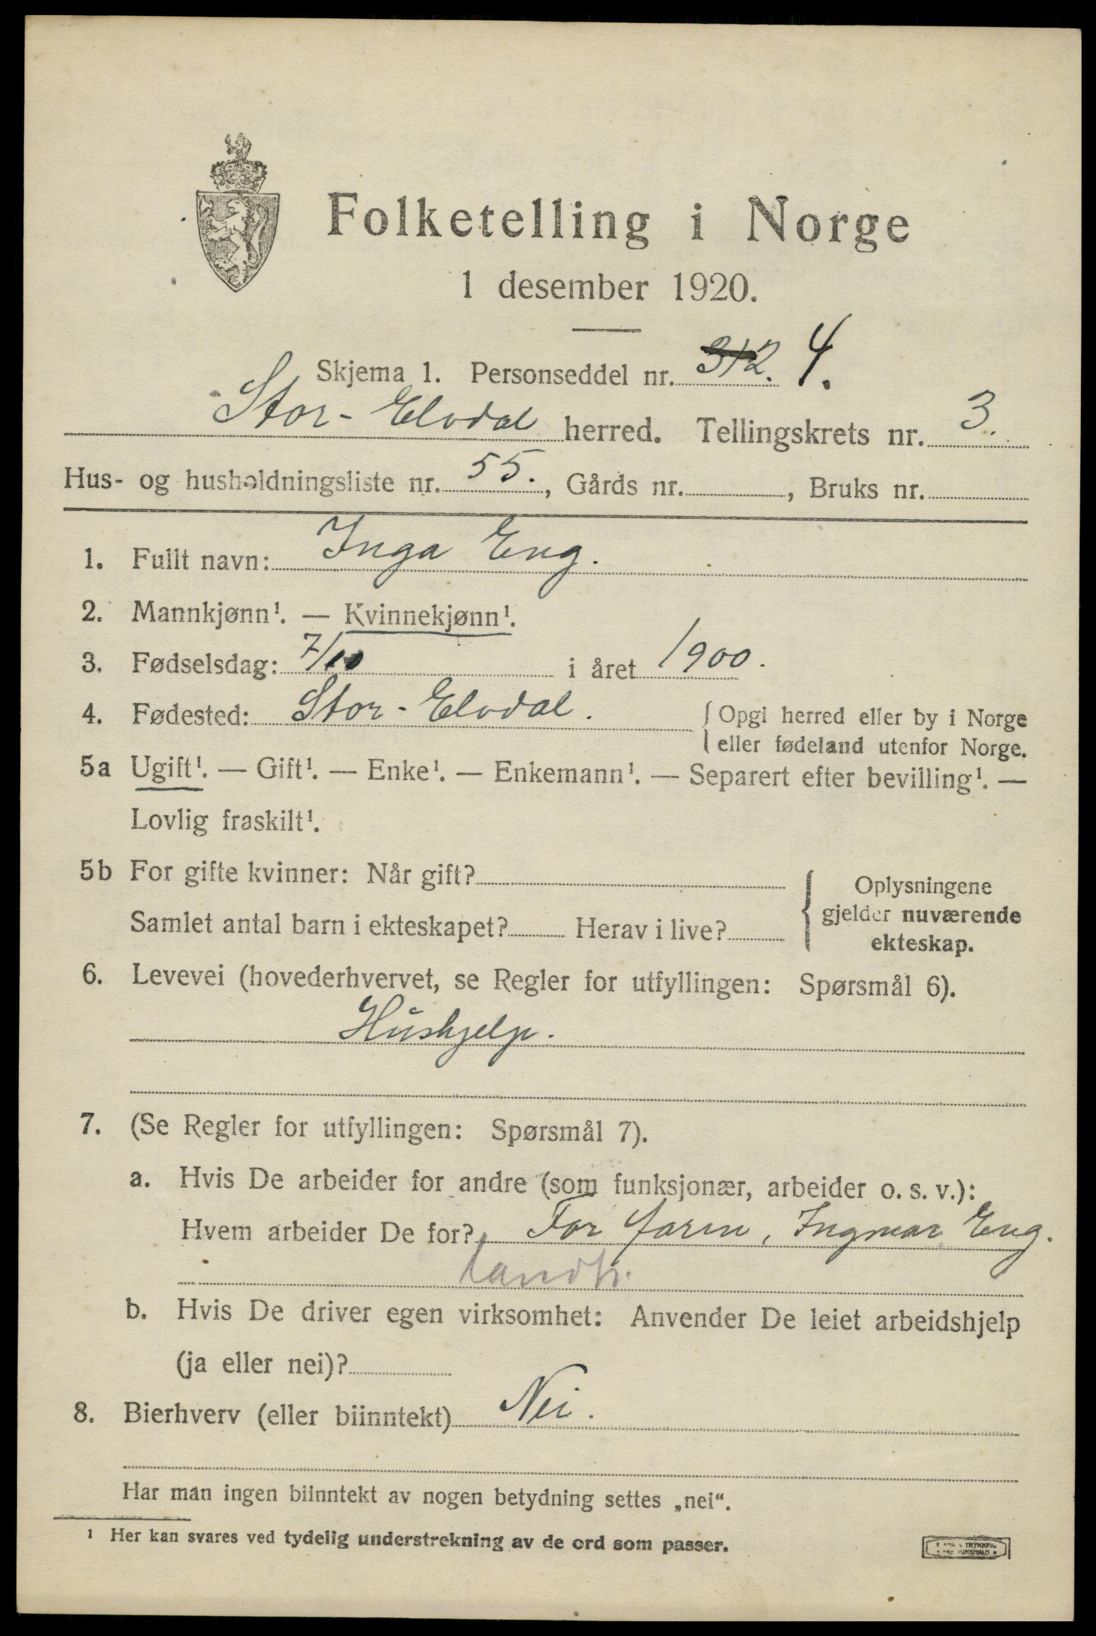 Folketelling i Norge
1 desember 1920.
Skjema 1. Personseddel nr. 312. 4.
Stor-Elvdal herred. Tellingskrets nr. 3.
Hus- og husholdningsliste nr. 55., Gårds nr. , Bruks nr.
1. Fullt navn: Inga Eng.
2. Mannkjønn¹. — Kvinnekjønn¹.
3. Fødselsdag: 7/10 i året 1900.
4. Fødested: Stor-Elvdal. { Opgi herred eller by i Norge
eller fødeland utenfor Norge.
5a Ugift¹. — Gift¹. — Enke¹. — Enkemann¹. — Separert efter bevilling¹. —
Lovlig fraskilt¹.
5b For gifte kvinner: Når gift?
Samlet antal barn i ekteskapet? Herav i live?
{ Oplysningene
gjelder nuværende
ekteskap.
6. Levevei (hovederhvervet, se Regler for utfyllingen: Spørsmål 6).
Hushjelp.
7. (Se Regler for utfyllingen: Spørsmål 7).
a. Hvis De arbeider for andre (som funksjonær, arbeider o. s. v.):
Hvem arbeider De for? For farm, Ingmar Eng.
landb.
b. Hvis De driver egen virksomhet: Anvender De leiet arbeidshjelp
(ja eller nei)?
8. Bierhverv (eller biinntekt) Nei.
Har man ingen biinntekt av nogen betydning settes „nei“.
¹ Her kan svares ved tydelig understrekning av de ord som passer.